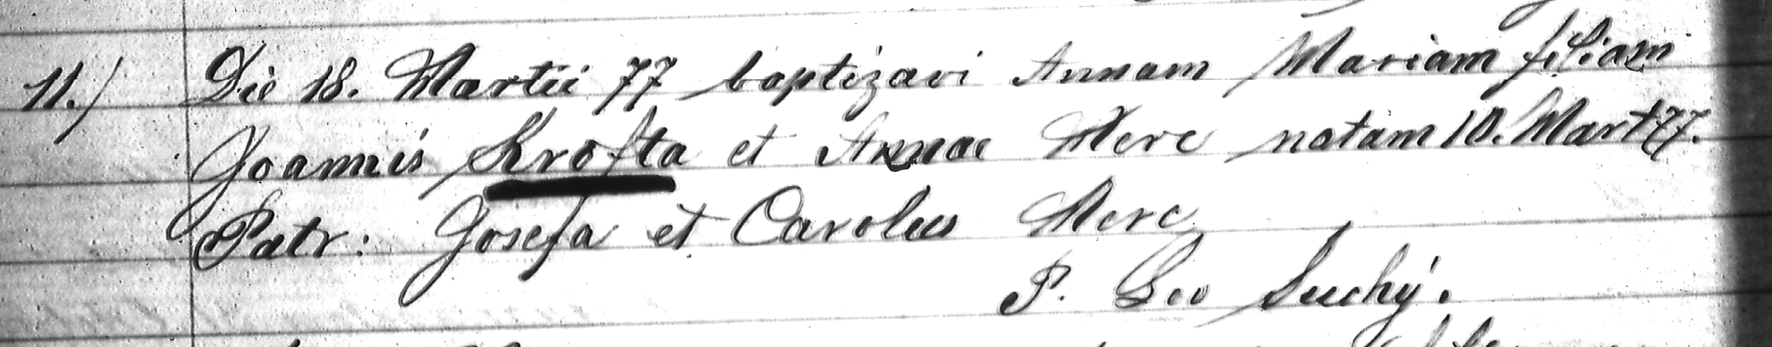 11.) Die 18. Martii 77 baptizavi Annam Mariam filiam
Joannis Krofta et Annae Herc natam 10. Mart 77.
Patr: Josefa et Carolus Herc
P. Leo Suchý.